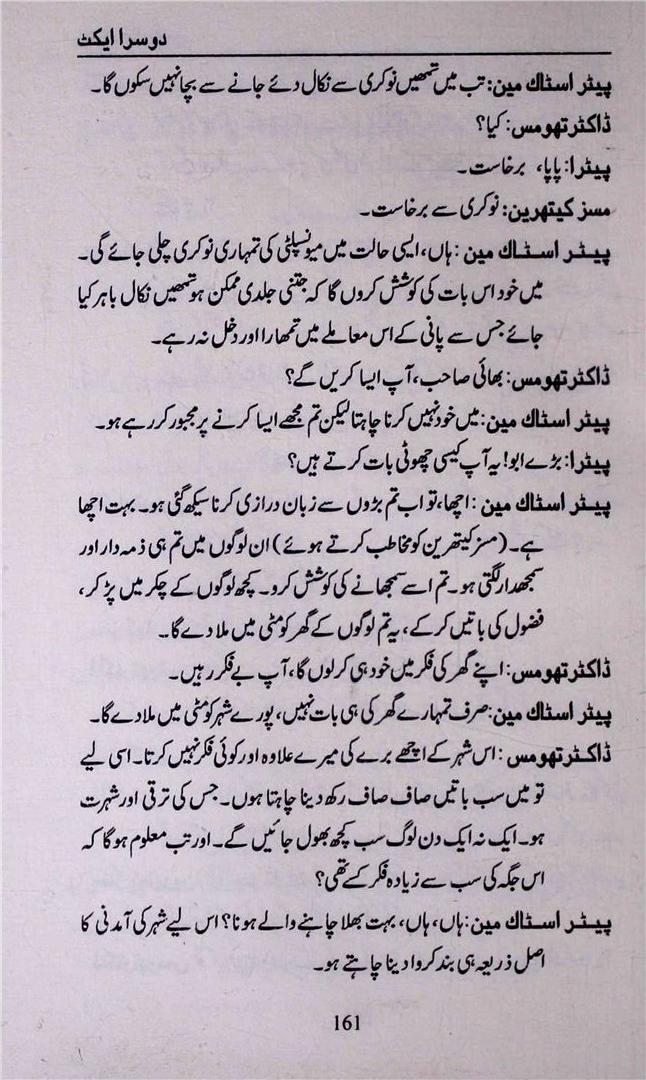 دوسرا ایکٹ
پیٹر اسٹاک مین: تب میں تمھیں نوکری سے نکال دئے جانے سے بچا نہیں سکوں گا۔
ڈاکٹر تھومس: کیا؟
پیٹرا: پاپا، برخاست۔
مسز کیتھرین: نوکری سے برخاست۔
پیٹر اسٹاک مین: ہاں، ایسی حالت میں میونسپلٹی کی تمہاری نوکری چلی جائے گی۔
میں خود اس بات کی کوشش کروں گا کہ جتنی جلدی ممکن ہو تمھیں نکال باہر کیا
جائے جس سے پانی کے اس معاملے میں تمھارا اور دخل نہ رہے۔
ڈاکٹر تھومس: بھائی صاحب، آپ ایسا کریں گے؟
پیٹر اسٹاک مین: میں خود نہیں کرنا چاہتا لیکن تم مجھے ایسا کرنے پر مجبور کر رہے ہو۔
پیٹرا: بڑے ابو! یہ آپ کیسی چھوٹی بات کرتے ہیں؟
پیٹر اسٹاک مین: اچھا، تو اب تم بڑوں سے زبان درازی کرنا سیکھ گئی ہو۔ بہت اچھا
ہے۔ (مسز کیتھرین کو مخاطب کرتے ہوئے) ان لوگوں میں تم ہی ذمہ دار اور
سمجھدار لگتی ہو۔ تم اسے سمجھانے کی کوشش کرو۔ کچھ لوگوں کے چکر میں پڑ کر،
فضول کی باتیں کرکے، یہ تم لوگوں کے گھر کو مٹی میں ملا دے گا۔
ڈاکٹر تھومس: اپنے گھر کی فکر میں خود ہی کر لوں گا، آپ بے فکر رہیں۔
پیٹر اسٹاک مین: صرف تمہارے گھر کی ہی بات نہیں، پورے شہر کو مٹی میں ملا دے گا۔
ڈاکٹر تھومس: اس شہر کے اچھے برے کی میرے علاوہ اور کوئی فکر نہیں کرتا۔ اسی لیے
تو میں سب باتیں صاف صاف رکھ دینا چاہتا ہوں۔ جس کی ترقی اور شہرت
ہو۔ ایک نہ ایک دن لوگ سب کچھ بھول جائیں گے۔ اور تب معلوم ہوگا کہ
اس جگہ کی سب سے زیادہ فکر کسے تھی؟
پیٹر اسٹاک مین: ہاں، ہاں، بہت بھلا چاہنے والے ہونا؟ اس لیے شہر کی آمدنی کا
اصل ذریعہ ہی بند کروا دینا چاہتے ہو۔
161